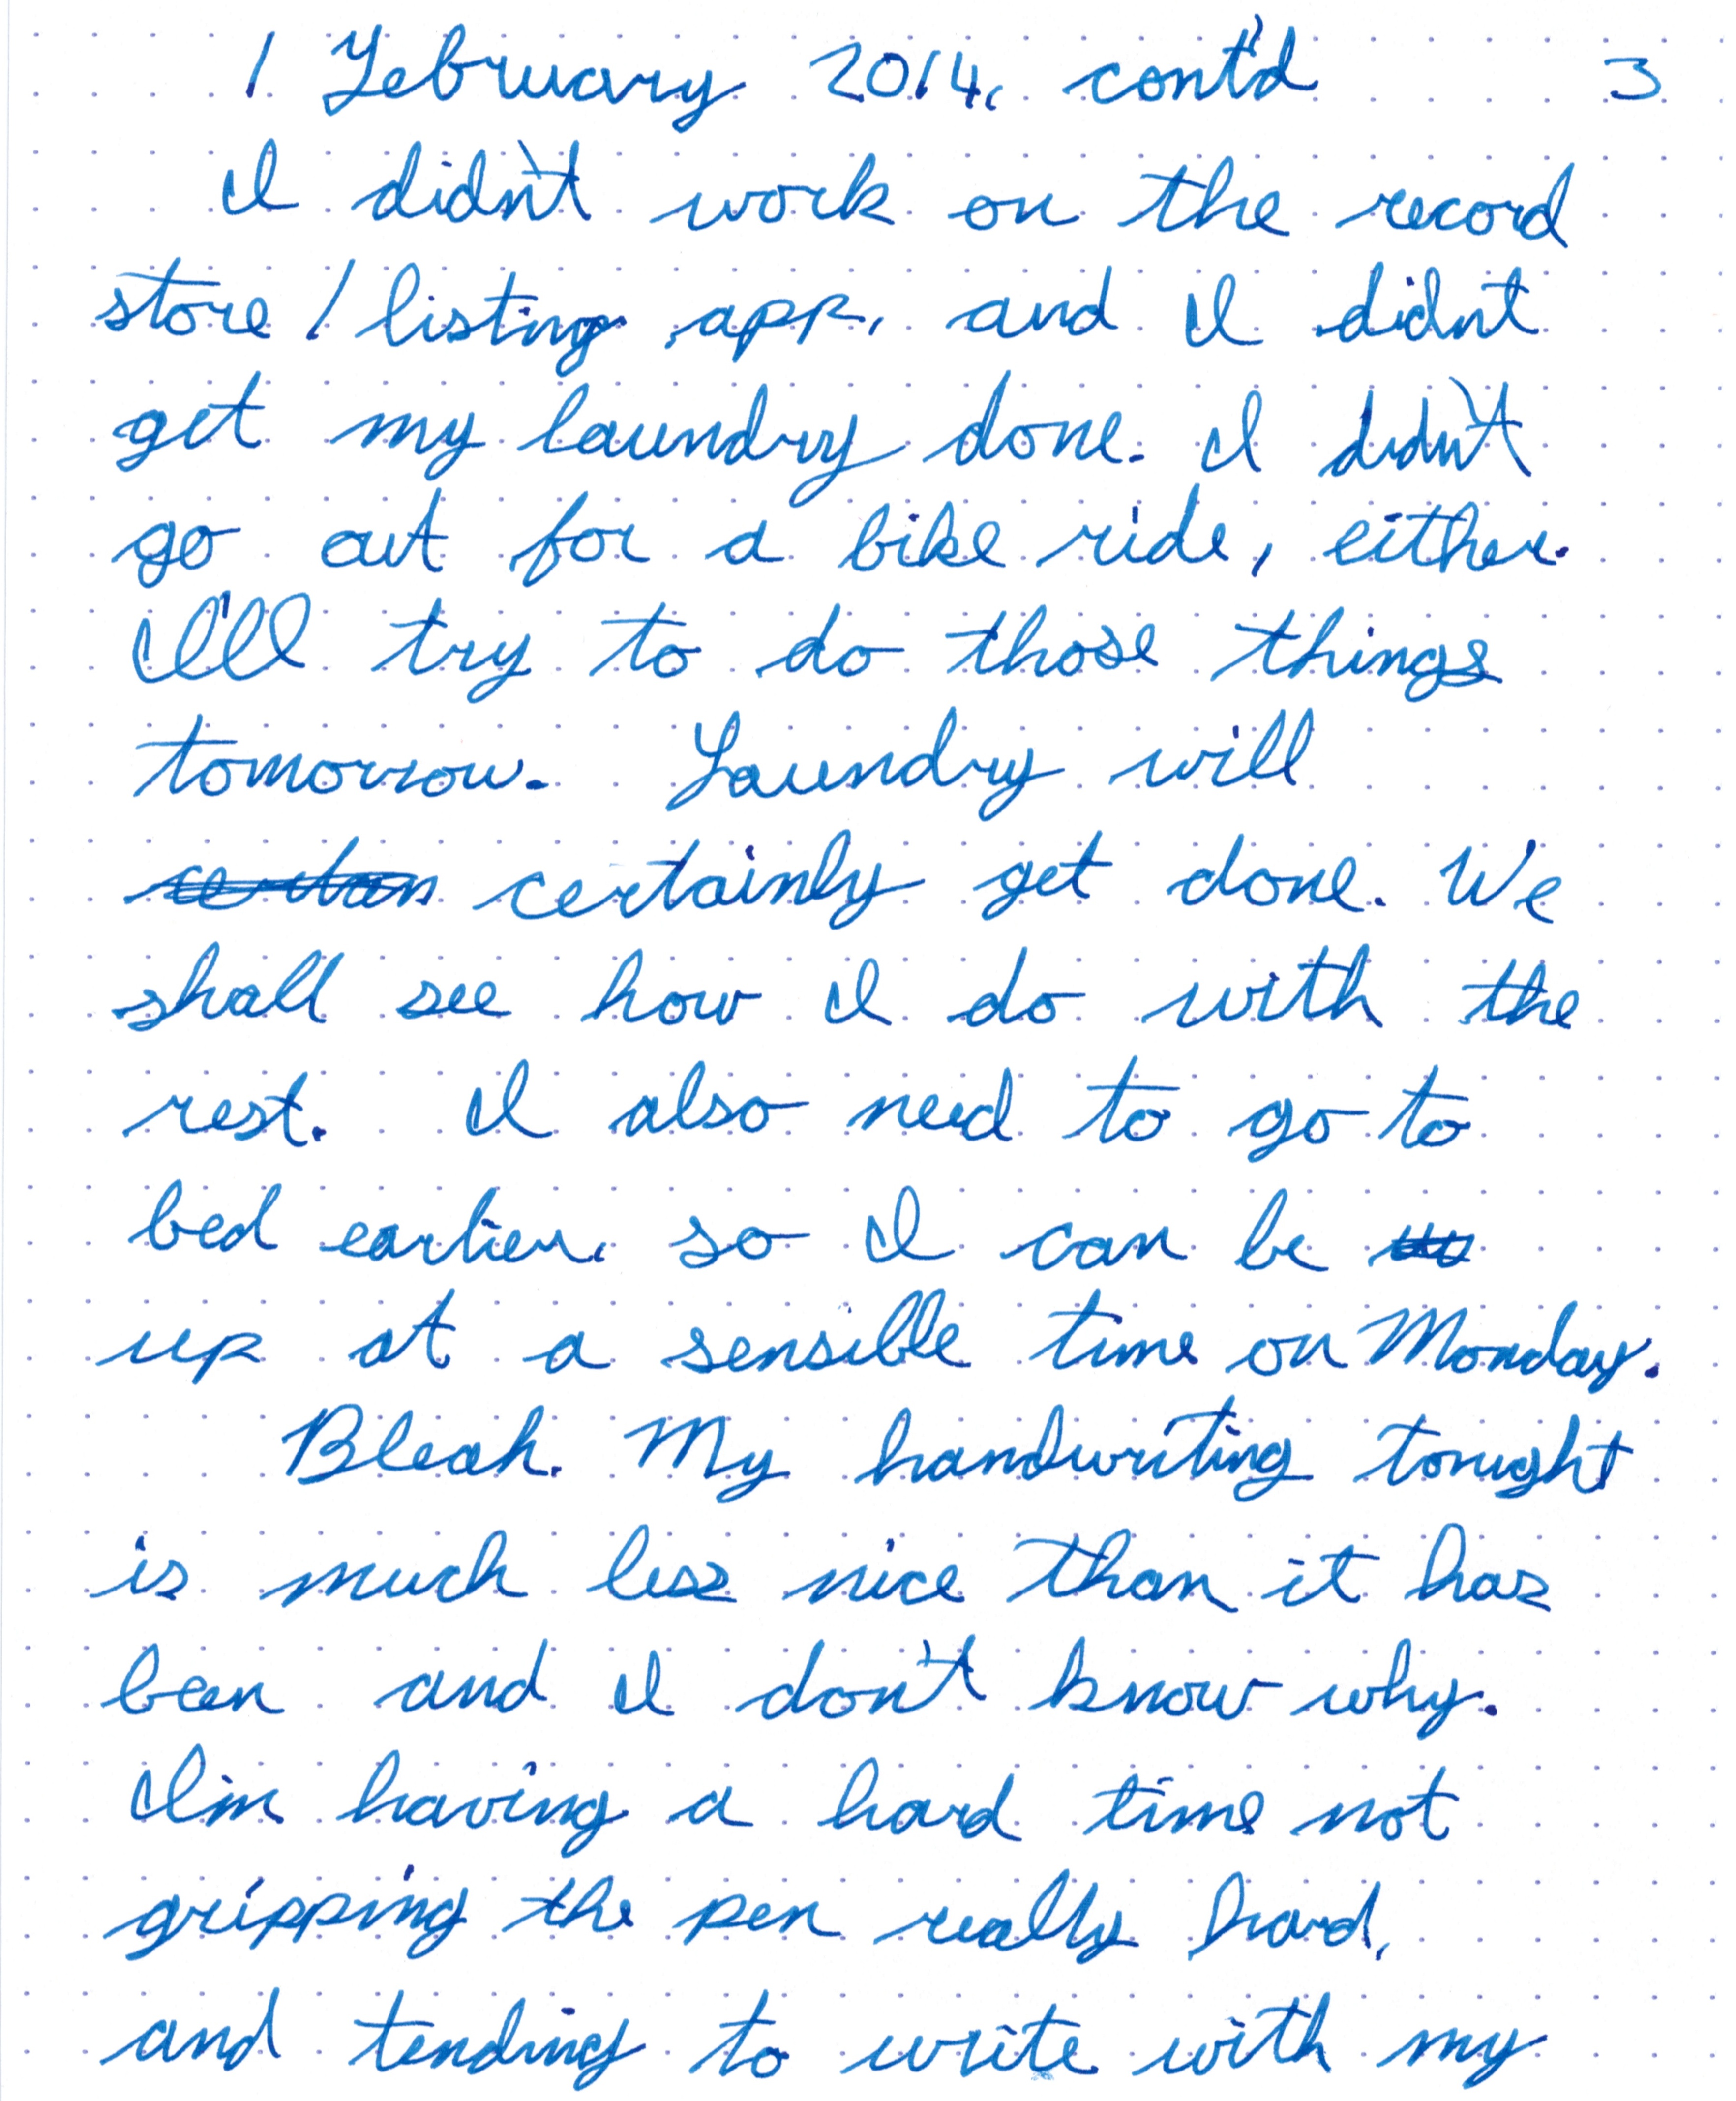 1 February 2014, cont'd 3
I didn't work on the record
store / listing app, and I didnt
get my laundry done. I didn't
go out for a bike ride, either.
I'll try to do those things
tomorrow. Laundry will
certainly get done. We
shall see how I do with the
rest. I also need to go to
bed earlier, so I can be
up at a sensible time on Monday.
Bleah. My handwriting tonight
is much less nice than it has
been and I don't know why.
I'm having a hard time not
gripping the pen really hard,
and tending to write with my